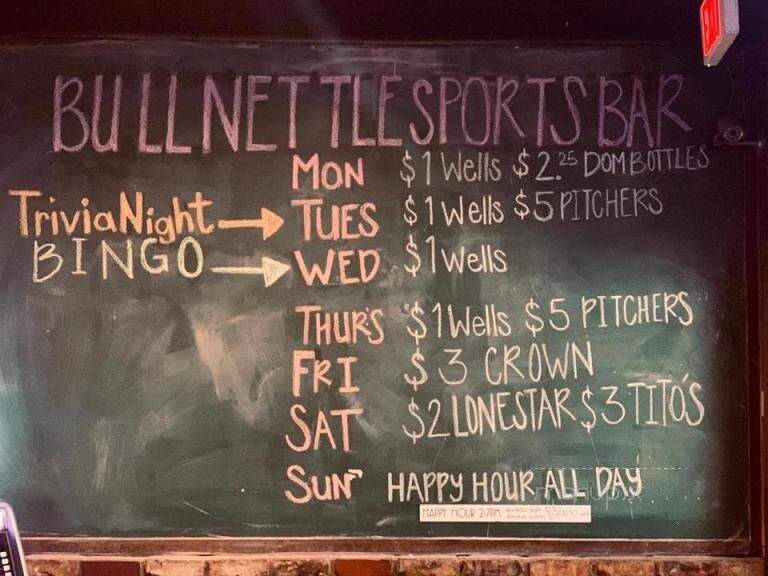 BULLNETTLE SPORTS BAR
MON $1 Wells $2.25 DOM BOTTLES
Trivia Night → TUES $1 Wells $5 PITCHERS
BINGO → WED $1 Wells
THURS $1 Wells $5 PITCHERS
FRI $3 CROWN
SAT $2 LONESTAR $3 TITO'S
SUN HAPPY HOUR ALL DAY
HAPPY HOUR 2-7PM